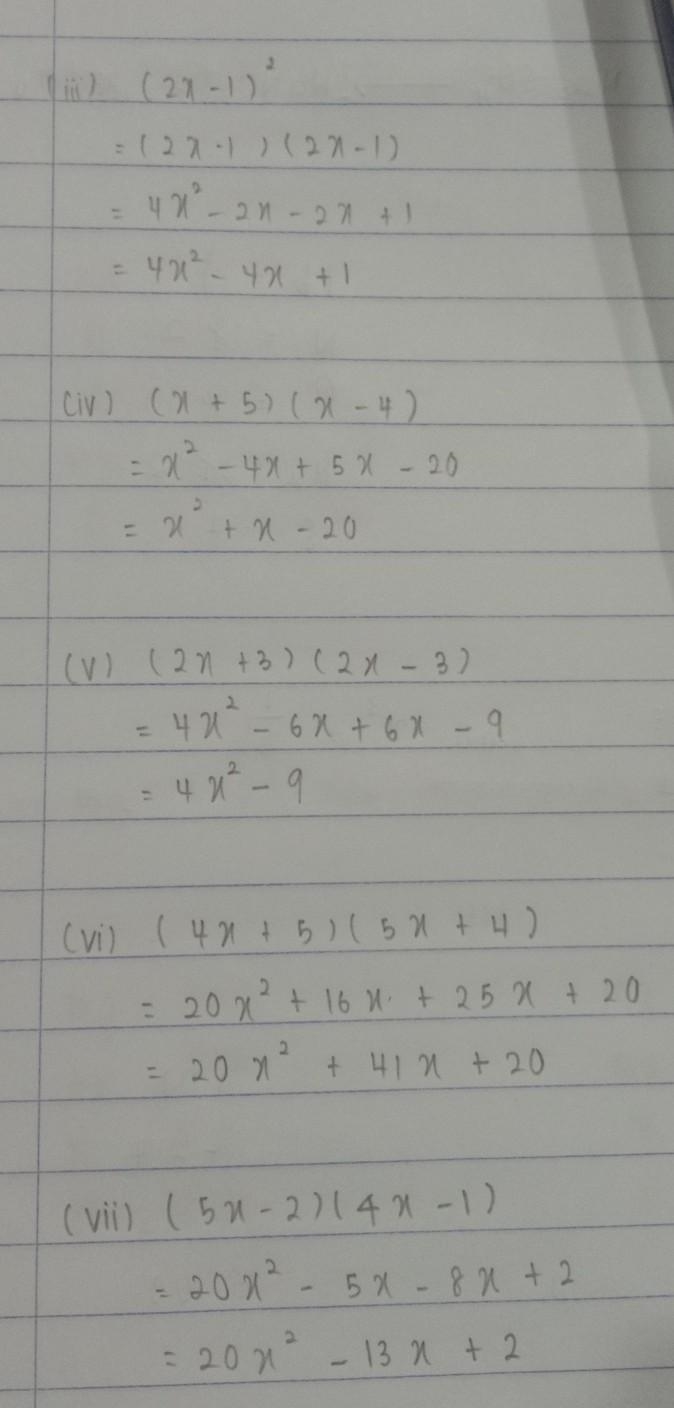 (iii) (2x-1)²
= (2x-1)(2x-1)
= 4x² - 2x - 2x + 1
= 4x² - 4x + 1
(iv) (x + 5)(x - 4)
= x² - 4x + 5x - 20
= x² + x - 20
(v) (2x +3)(2x - 3)
= 4x² - 6x + 6x - 9
= 4x² - 9
(vi) (4x + 5)(5x + 4)
= 20x² + 16x + 25x + 20
= 20x² + 41x + 20
(vii) (5x-2)(4x-1)
= 20x² - 5x - 8x + 2
= 20x² - 13x + 2